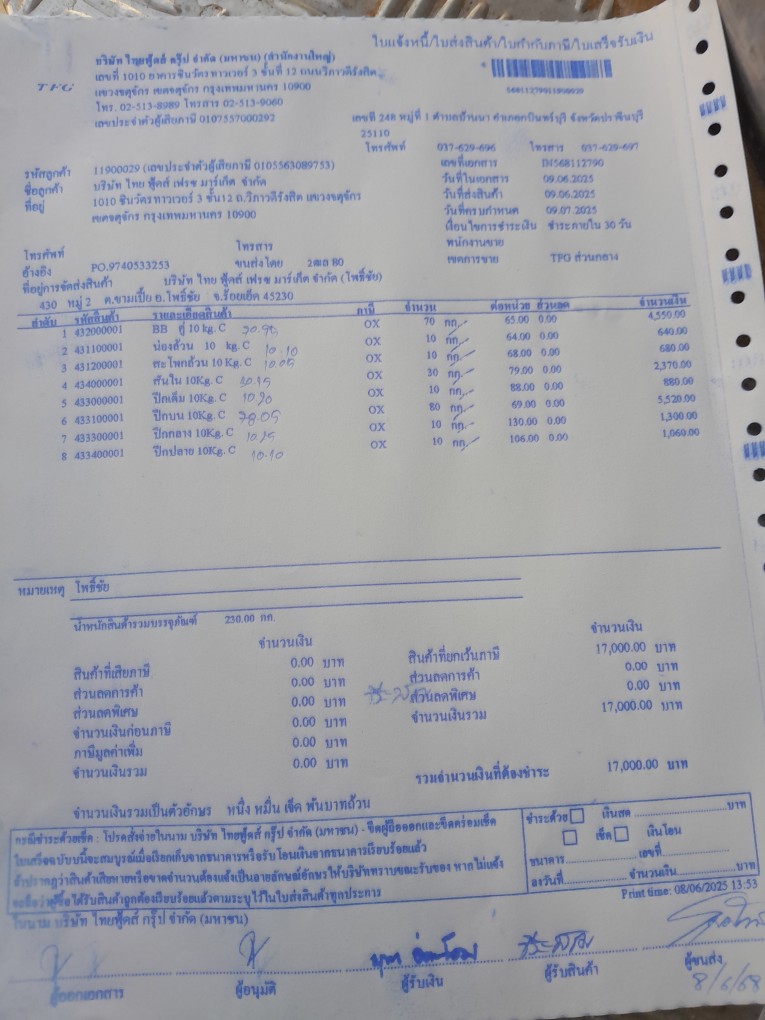 ใบแจ้งหนี้/ใบส่งสินค้า/ใบกำกับภาษี/ใบเสร็จรับเงิน
TFG
บริษัท ไทยฟู้ดส์ กรุ๊ป จำกัด (มหาชน) (สำนักงานใหญ่)
เลขที่ 1010 อาคารชินวัตรทาวเวอร์ 3 ชั้นที่ 12 ถนนวิภาวดีรังสิต
แขวงจตุจักร เขตจตุจักร กรุงเทพมหานคร 10900
โทร. 02-513-8989 โทรสาร 02-513-9060
เลขประจำตัวผู้เสียภาษี 0107557000292
เลขที่ 248 หมู่ที่ 1 ตำบลบ้านนา อำเภอกบินทร์บุรี จังหวัดปราจีนบุรี
25110
โทรศัพท์ 037-629-696 โทรสาร 037-629-697
รหัสลูกค้า 11900029 (เลขประจำตัวผู้เสียภาษี 0105563089753)
ชื่อลูกค้า บริษัท ไทย ฟู้ดส์ เฟรช มาร์เก็ต จำกัด
ที่อยู่ 1010 ชินวัตรทาวเวอร์ 3 ชั้น12 ถ.วิภาวดีรังสิต แขวงจตุจักร
เขตจตุจักร กรุงเทพมหานคร 10900
เลขที่เอกสาร IN568112790
วันที่ใบเอกสาร 09.06.2025
วันที่ส่งสินค้า 09.06.2025
วันที่ครบกำหนด 09.07.2025
เงื่อนไขการชำระเงิน ชำระภายใน 30 วัน
พนักงานขาย
เขตการขาย TFG ส่วนกลาง
โทรศัพท์ โทรสาร
อ้างอิง PO.9740533253 ขนส่งโดย 2ฒล 80
ที่อยู่การจัดส่งสินค้า บริษัท ไทย ฟู้ดส์ เฟรช มาร์เก็ต จำกัด (โพธิ์ชัย)
430 หมู่ 2 ต.ขามเปี้ย อ.โพธิ์ชัย จ.ร้อยเอ็ด 45230
ลำดับ รหัสสินค้า รายละเอียดสินค้า ภาษี จำนวน ต่อหน่วย ส่วนลด จำนวนเงิน
1 432000001 BB คู่ 10 kg. C OX 70 กก. 65.00 0.00 4,550.00
2 431100001 น่องล้วน 10 kg. C 10.10 OX 10 กก. 64.00 0.00 640.00
3 431200001 สะโพกล้วน 10 Kg. C 10.05 OX 10 กก. 68.00 0.00 680.00
4 434000001 สันใน 10Kg. C OX 30 กก. 79.00 0.00 2,370.00
5 433000001 ปีกเต็ม 10Kg. C OX 10 กก. 88.00 0.00 880.00
6 433100001 ปีกบน 10Kg. C OX 80 กก. 69.00 0.00 5,520.00
7 433300001 ปีกกลาง 10Kg. C OX 10 กก. 130.00 0.00 1,300.00
8 433400001 ปีกปลาย 10Kg. C 10.10 OX 10 กก. 106.00 0.00 1,060.00
หมายเหตุ โพธิ์ชัย
น้ำหนักสินค้ารวมบรรจุภัณฑ์ 230.00 กก.
จำนวนเงิน จำนวนเงิน
สินค้าที่เสียภาษี 0.00 บาท สินค้าที่ยกเว้นภาษี 17,000.00 บาท
ส่วนลดการค้า 0.00 บาท ส่วนลดการค้า 0.00 บาท
ส่วนลดพิเศษ 0.00 บาท ส่วนลดพิเศษ 0.00 บาท
จำนวนเงินก่อนภาษี 0.00 บาท จำนวนเงินรวม 17,000.00 บาท
ภาษีมูลค่าเพิ่ม 0.00 บาท
จำนวนเงินรวม 0.00 บาท รวมจำนวนเงินที่ต้องชำระ 17,000.00 บาท
จำนวนเงินรวมเป็นตัวอักษร หนึ่ง หมื่น เจ็ด พันบาทถ้วน
กรณีชำระด้วยเช็ค : โปรดสั่งจ่ายในนาม บริษัท ไทยฟู้ดส์ กรุ๊ป จำกัด (มหาชน) - ขีดผู้ถือออกและขีดคร่อมเช็ค
ใบเสร็จฉบับนี้จะสมบูรณ์เมื่อเรียกเก็บจากธนาคารหรือรับ โอนเงินจากธนาคารเรียบร้อยแล้ว
ถ้าปรากฏว่าสินค้าเสียหายหรือขาดจำนวนต้องแจ้งเป็นลายลักษณ์อักษรให้บริษัททราบขณะรับของ หากไม่แจ้ง
จะถือว่าผู้ซื้อได้รับสินค้าถูกต้องเรียบร้อยแล้วตามระบุไว้ในใบส่งสินค้าทุกประการ
ชำระด้วย เงินสด บาท
เช็ค เงินโอน
ธนาคาร เลขที่
ลงวันที่ จำนวนเงิน บาท
Print time: 08/06/2025 13:53
ในนาม บริษัท ไทยฟู้ดส์ กรุ๊ป จำกัด (มหาชน)
ผู้ออกเอกสาร ผู้อนุมัติ ผู้รับเงิน ผู้รับสินค้า ผู้ขนส่ง
8/6/68